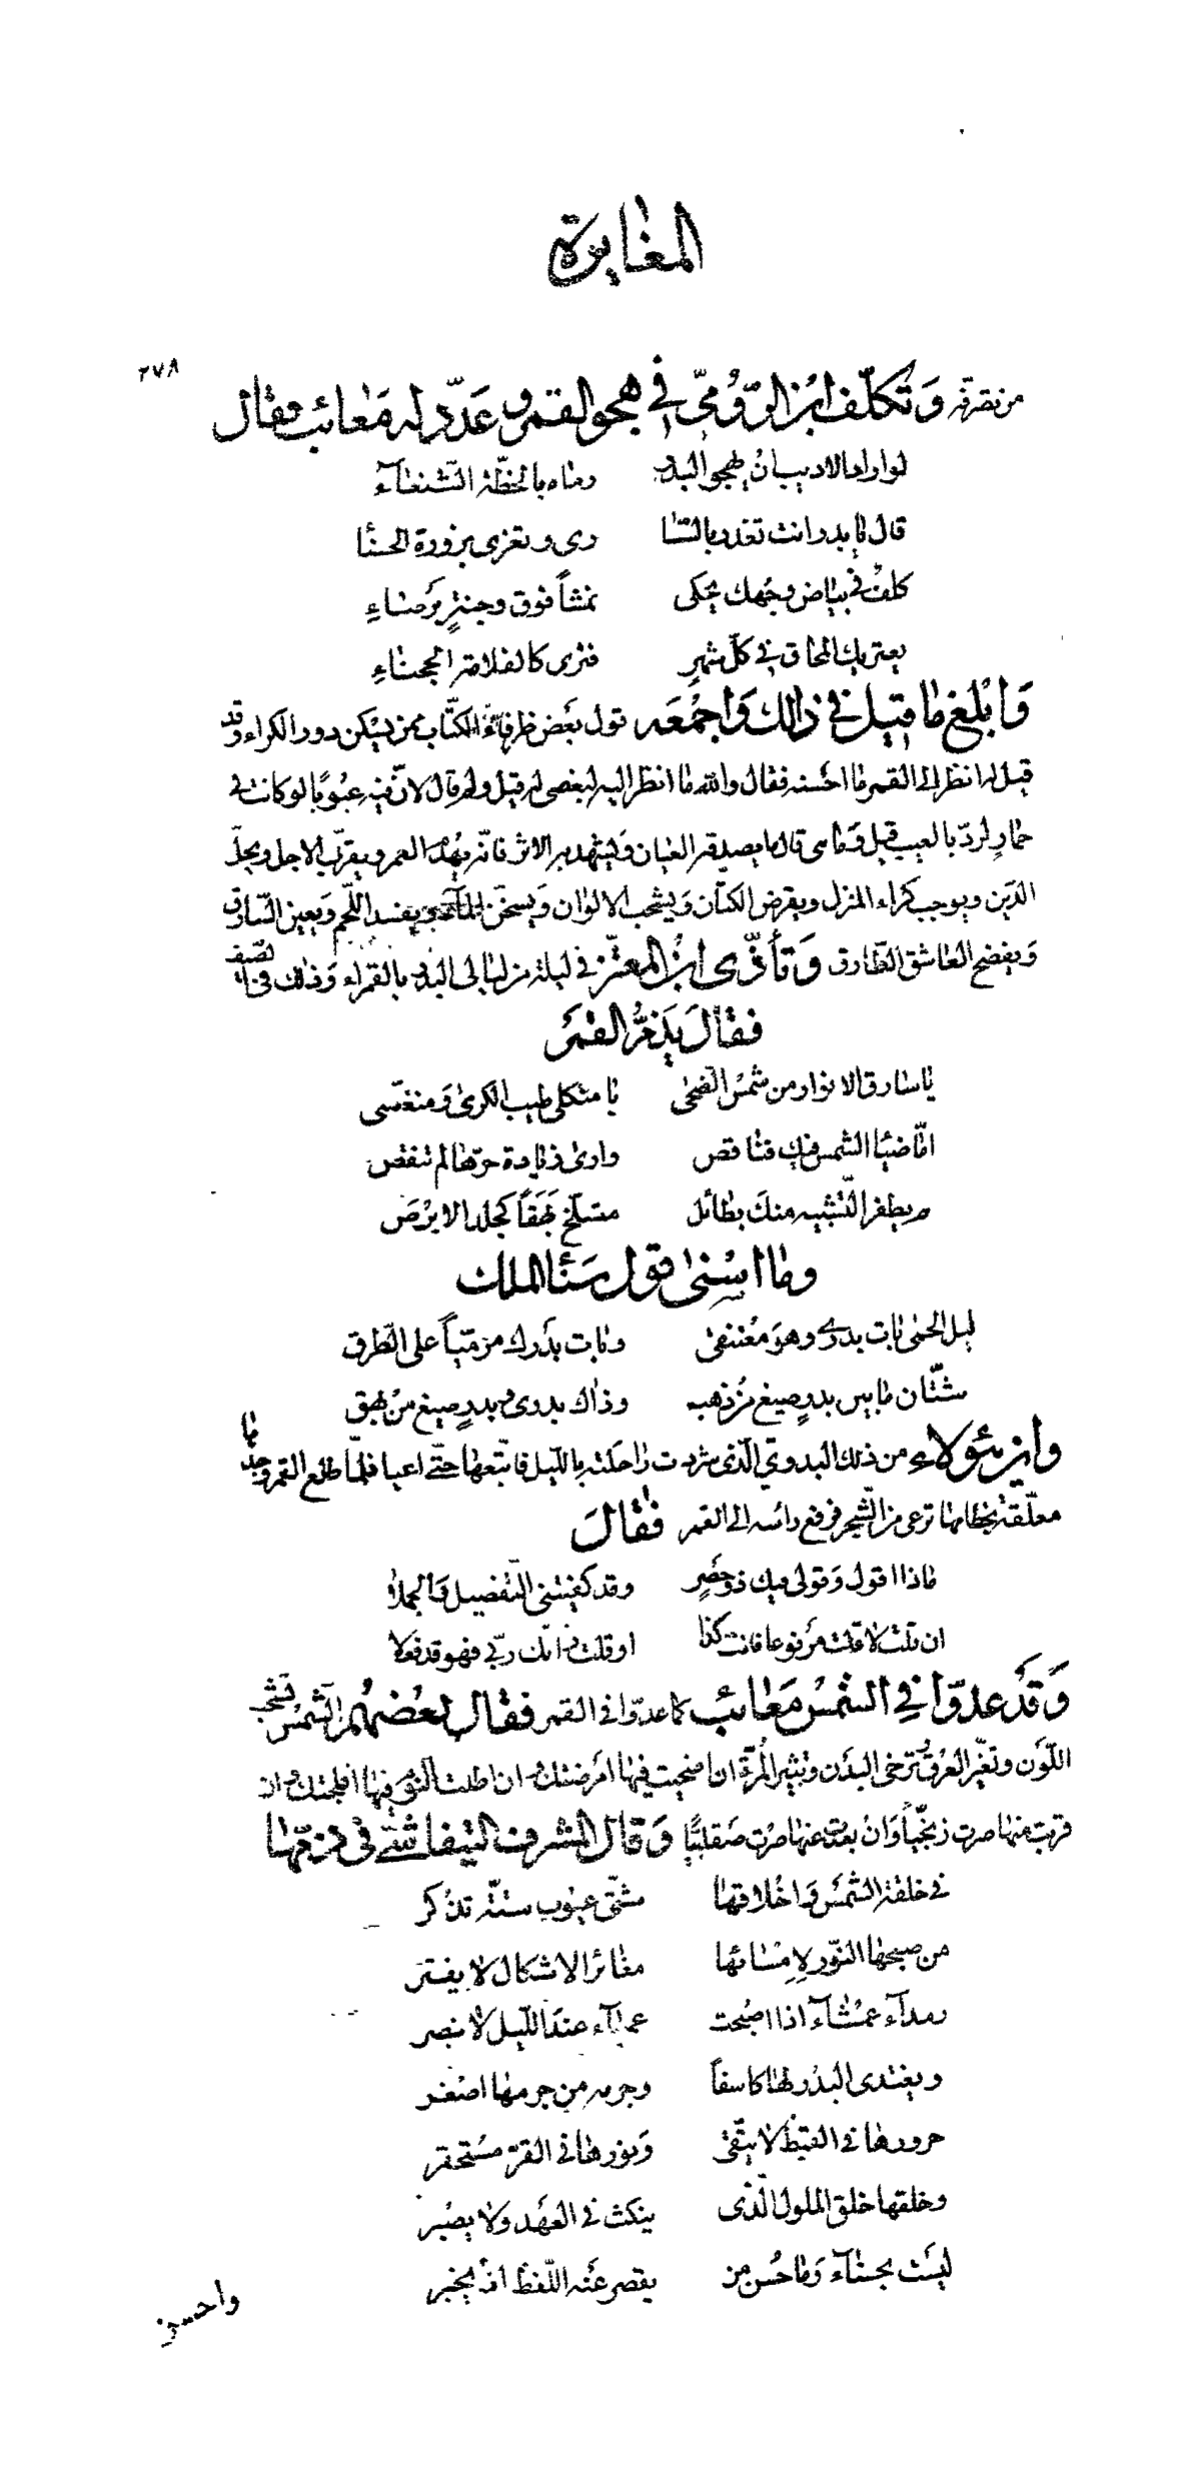 المغايرة
٢٧٨
من تصرفه وَتكلّف ابن الرّوميّ في هجو القمر وعَدّد له مَعائب فقال
لو اراد الاديب انْ يهجو البدر رماه بالخطّة الشّنعآء
قال يا بدر انت تغدر بالسّا رى و تغرى بزورة الحسنا
كلفٌ في بياض وجهك يحكى نمشاً فوق وجنةٍ بَرصاءِ
يعتريك المحاق في كلّ شهرٍ فترى كالقلامة الحجناءِ
وَابْلغ ما قيل في ذالك وَاجمْعَه قول بعَض ظرفاء الكتّاب ممن يسْكن دور الكراء وقد
قيل له انظر الى القمر ما احسَنه فقال والله ما انظر اليه لبغضى له قيل ولم قال لانّ فيه عيُوبًا لو كانت في
حمارٍ لردّ بالعيب قيل وَما هى قال ما يصدقه العيان وَيشهد به الاثر فانّه يهْدم العمر ويقرّب الاجل ويحلّ
الدّين ويوجب كراء المنزل ويقرض الكتّان وَيشحب الالوان وَيسخّن المآء ويفسد اللّحم وَيعين السّارق
وَيفضح العاشق الطّارق وَتأذّى ابنُ المعتز في ليلة من ليالى البدر بالقمراء وَذالك في نا نصّيف
فقالَ يَذمُّ القمَر
يا سارق الانوار من شمسْ الضّحى يا مثكلى طيب الكرى وَمنغّصى
امّا ضيَا الشمس فيك فناقص وارى زيادة حرّها لم تنقص
لم يظفر التّشبيه منكَ بطائل متسلّخ بَهَقاً كجلد الابرْصَ
وما اسْنى قول سَنَا الملك
ليل الحمى بات بدرى وهوَ مُعْتنقى وبات بدَرك مرَمّياً على الطّرق
شتّان ما بين بدرٍ صيغ من ذهب وذاك بدرى وبدرٍ صيغ منْ بهق
واين هؤلاء من ذلك البدوي الّذى شردت راحلته بالليل فاتّبعها حتّى اعيا فلمّا طلع القمر وجدها
معلّقة بخطامها ترعى من الشّجر فرفع رائسه الى القمر فقالَ
ماذا اقول وَقولى فيك ذو حَصَرٍ وقد كفيتنى التّفصيل وَالجملا
ان قلت لا زلت مرَفوعا فانت كذا او قلت زانك ربّى فهو قد فعلا
وَقدْ عدّوا في الشمسْ مَعائب كما عدّوا في القمر فقال بعضهُم الشّمسُ تشحب
اللّون وتغيّر العرْق وترخى البدَن وتثير المُرّة ان اضحيت فيها امَرضتك وان اطلت النّوم فيها افلجتك وان
قربت منها صرت زنجيّاً وَانْ بعدت عنها صرْت صَقلبيًّا وَقال المشرف التيفاشىّ فى ذمّها
في خلقة الشّمسَ وَاخْلاقها شتّى عيوب ستّة تذكر
من صبحها النّور لامسْائها مغائر الاشكال لا يفتر
رمدآء عمشْآء اذا اصبْحت عميآء عندَ اللّيل لا تبصر
ويغتدى البدْر لها كاسفاً وجرمه من جرمها اصْغر
حرورها في القيظ لا يتّقى وَنورها في القرّ مسْتحقر
وخلقها خلق الملول الّذى ينكث في العهَد ولا يصْبر
ليسَت بحسنآء وَما حُسن من يقصر عنَه اللّفظ اذ يخبر
واحسن